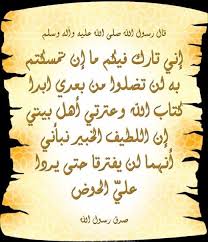 قال رسول الله صلى الله عليه واله وسلم
إني تارك فيكم ما إن تمسكتم
به لن تضلوا من بعدي ابدا
كتاب الله وعترتي أهل بيتي
إن اللطيف الخبير نباني
أنهما لن يفترقا حتى يردا
عليّ الحوض
صدق رسول الله